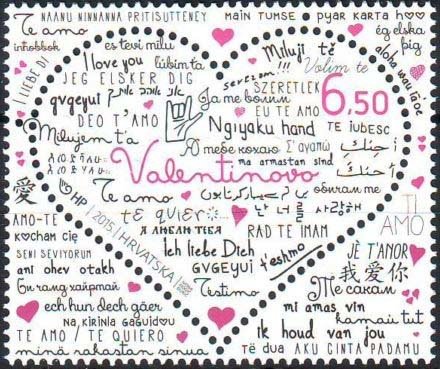 NAANU NINNANNA PRITISUTTENEY
MAIN TUMSE PYAR KARTA HOO
Te amo
inhobbok
es tevi milu
Miluji tě
ég elska þig
I LIEBE DI
I love you
ljubim ta
Volim te
aloha wau iā ʻoe
JEG ELSKER DIG
sevelom!!!
SZERETLEK
6,50
gvgeyui
DEO T'AMO
Ja me bolim
EU TE AMO
Milujem ťa
Ngiyaku hand
TE IUBESC
Я тебе кохаю
Σ'αγαπώ
أحبك
Valentinovo
ma armastan sind
أحبك
爱
HP
Te amo
obicham me
TI AMO
AMO-TE
KOCHAM CIĘ
2015 | HRVATSKA
te quiero
난 너 사랑해
SENI SEVIYORUM
Я ЛЮБЛЮ ТЕБЯ
RAD TE IMAM
ani ohev otakh
Ich liebe Dich
JÈ T'ANOR
GVGEYUI
t'eshmo
我爱你
Би чамд хайртай
Testimo
Те сакам
ech hun dech gäer
mi amas vin
NA, KIRINLA GAGUIDU
kamaii tut
TE AMO / TE QUIERO
ik houd van jou
minä rakastan sinua
të dua AKU CINTA PADAMU